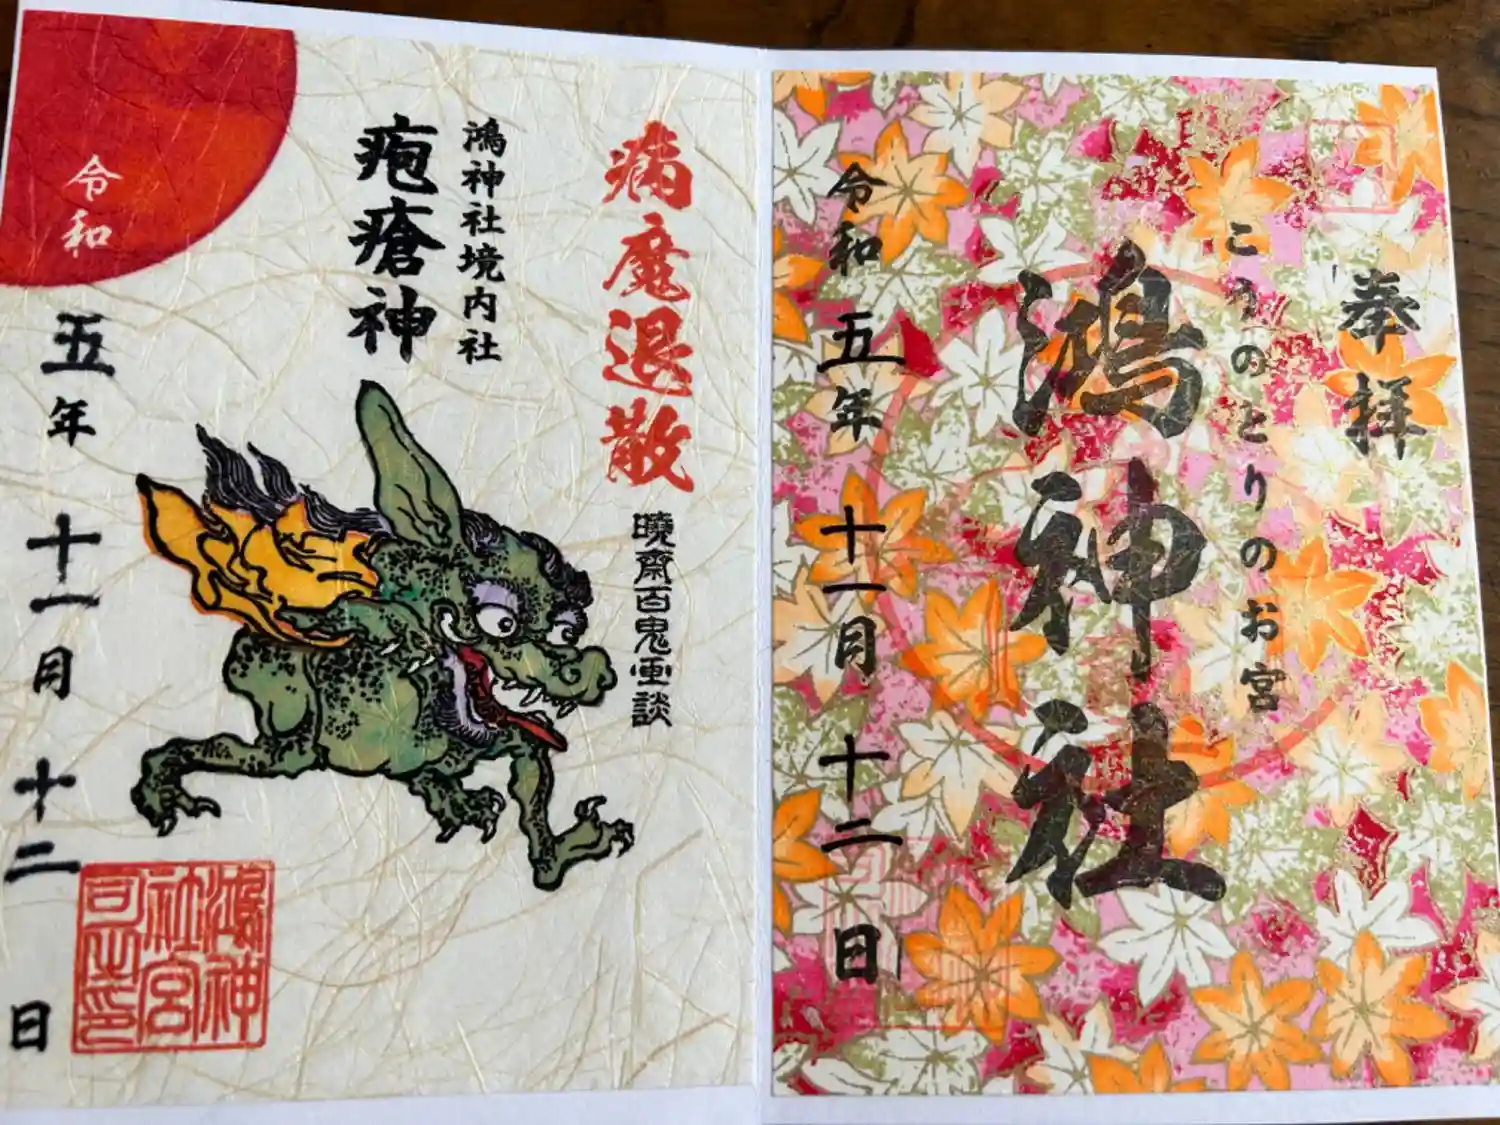 奉拝
こうのとりのお宮
鴻神社
令和五年十一月十二日
病魔退散
暁斎百鬼画談
鴻神社境内社
疱瘡神
令和五年十一月十二日
鴻神
社宮
司之印